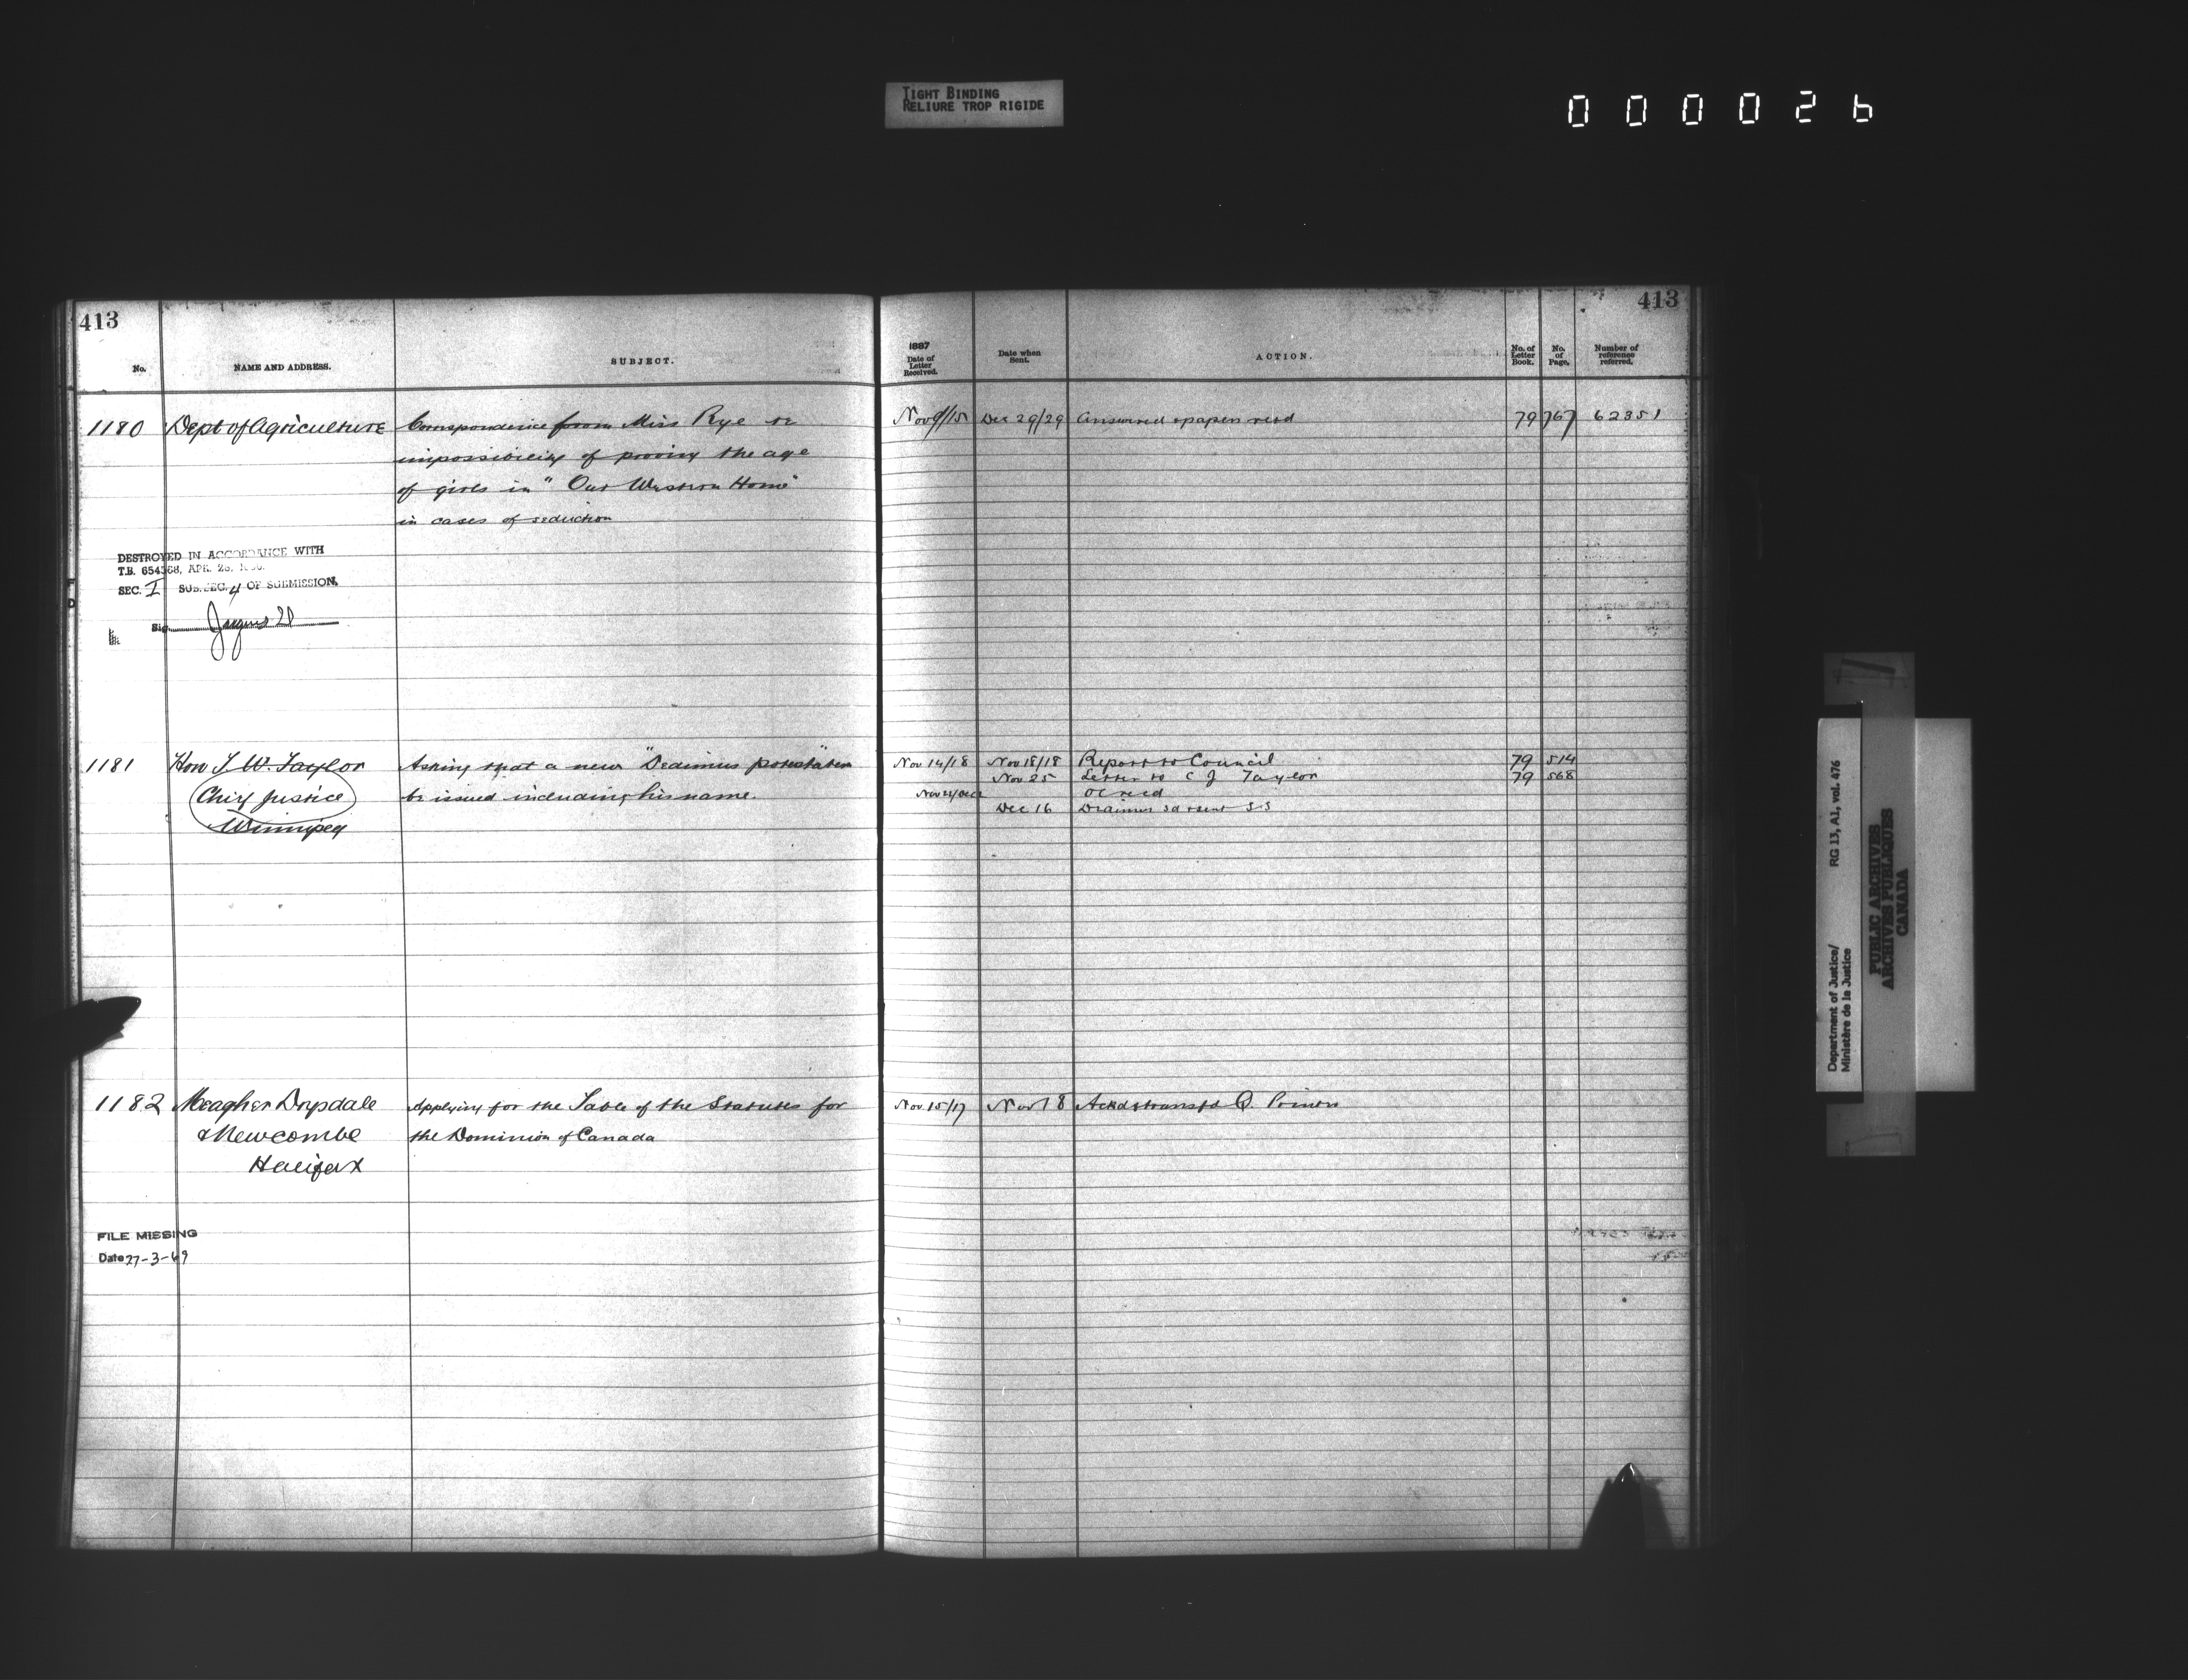 TIGHT BINDING
RELIURE TROP RIGIDE
000026
413
No.
NAME AND ADDRESS.
SUBJECT.
1180 Dept of Agriculture Correspondence from Miss Rye re
impossibility of proving the age
of girls in "Our Western Home"
in cases of seduction
DESTROYED IN ACCORDANCE WITH
T.B. 654388, APR. 26,
SEC. I SUB.SEC. 4 OF SUBMISSION.
Sig.
1181 Hon T. W. Taylor Asking that a new "Dedimus potestatem"
Chief Justice be issued including his name.
Winnipeg
1182 Meagher Drysdale Applying for the Table of the Statutes for
& Newcombe the Dominion of Canada
Halifax
FILE MISSING
Date 27-3-69
413
1887
Date of
Letter
Received.
Date when
Sent.
ACTION.
No. of
Letter
Book.
No.
of
Page.
Number of
reference
referred.
Nov 9/15 Dec 29/29 Answered & papers retd 79 767 62351
Nov 14/18 Nov 18/18 Report to Council 79 514
Nov 25 Letter to C J Taylor 79 568
OC recd
Dec 16 Dedimus sent SS
Nov 15/17 Nov 18 Ackd & transfd Q. Printer
Department of Justice/ RG 13, A1, vol. 476
Ministère de la Justice
PUBLIC ARCHIVES
ARCHIVES PUBLIQUES
CANADA